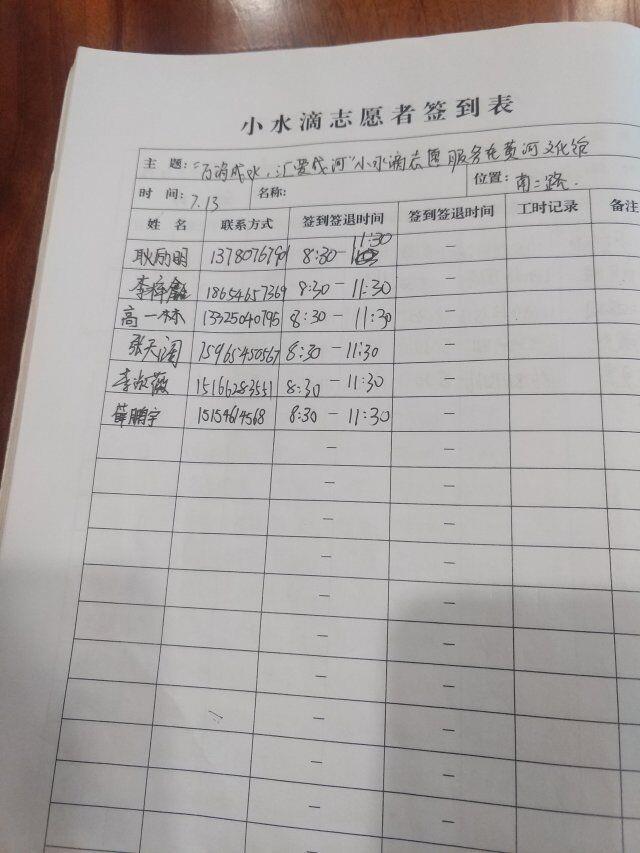 小水滴志愿者签到表
主 题: "百滴成水,汇聚成河"小水滴志愿服务在黄河文化馆
时 间: 7.13 名称: 位置: 南二路.
姓 名 联系方式 签到签退时间 签到签退时间 工时记录 备注
耿励明 8:30-11:30 —
李梓鑫 18654657369 8:30-11:30 —
高一林 13325040795 8:30-11:30 —
张天阔 15965450567 8:30-11:30 —
李淑薇 15166283551 8:30-11:30 —
薛鹏宇 8:30-11:30 —
— —
— —
— —
— —
— —
— —
— —
— —
— —
— —
— —